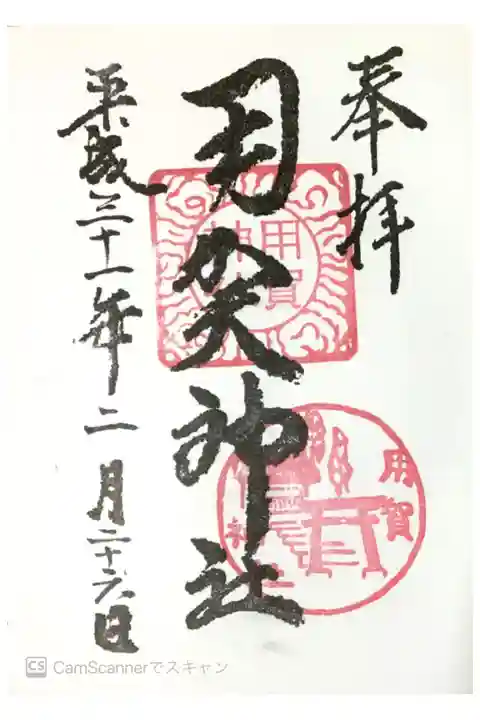 奉拝
用賀神社
用賀
神社
用賀
神社
平成三十一年二月二十六日
CS CamScannerでスキャン